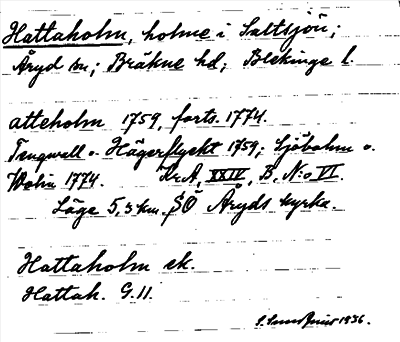 Hattaholm, holme i Saltsjön;
Åryd sn; Bräkne hd; Blekinge l.
atteholm 1759, forts. 1774.
Tengwall o. Hägerflyckt 1759; Sjöbohm o.
Wolin 1774. Kr.A, XXIV, B. N:o VI.
Läge 5,3 km SÖ Åryds kyrka.
Hattaholm ek.
Hattah. G.11.
1936.